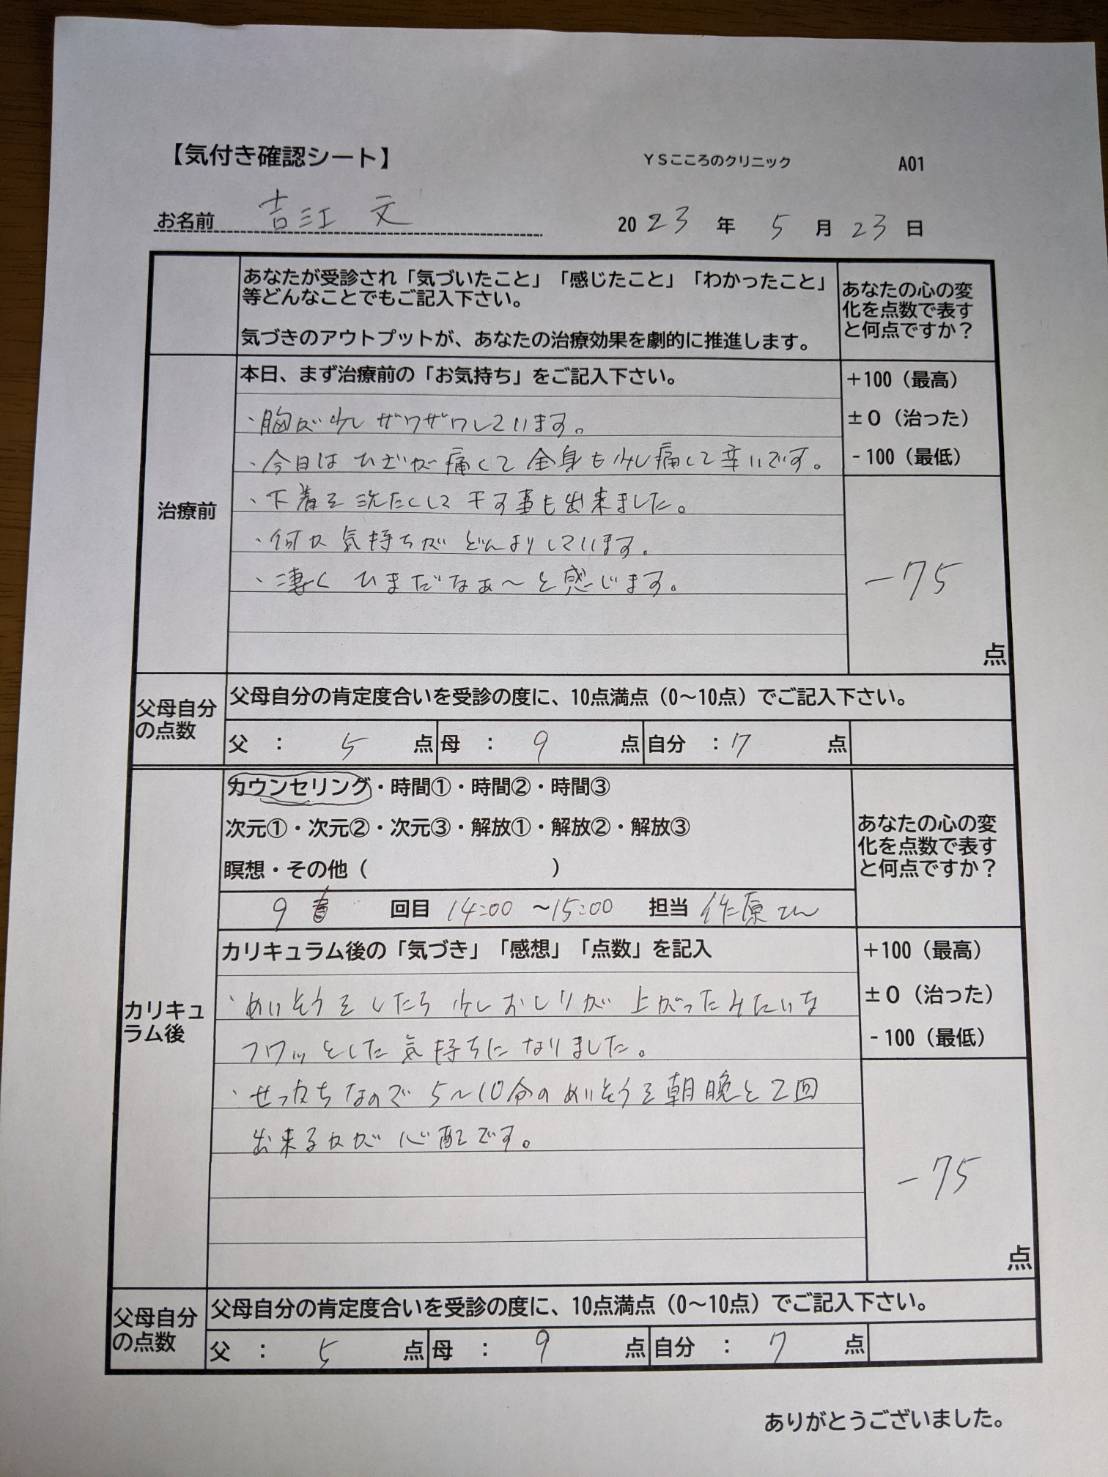 【気付き確認シート】
YSこころのクリニック
A01
お名前 吉江 文
2023年 5月23日
あなたが受診され「気づいたこと」「感じたこと」「わかったこと」
等どんなことでもご記入下さい。
気づきのアウトプットが、あなたの治療効果を劇的に推進します。
あなたの心の変
化を点数で表す
と何点ですか？
治療前
本日、まず治療前の「お気持ち」をご記入下さい。
・胸が少しザワザワしています。
・今日はひざが痛くて全身も少し痛して辛いです。
・下着を洗たくして干す事も出来ました。
・何か気持ちがどんよりしています。
・凄くひまだなぁ〜と感じます。
+100（最高）
±0（治った）
-100（最低）
-75
点
父母自分
の点数
父母自分の肯定度合いを受診の度に、10点満点（0〜10点）でご記入下さい。
父 ： 5 点 母 ： 9 点 自分 ：7 点
カリキュ
ラム後
カウンセリング・時間①・時間②・時間③
次元①・次元②・次元③・解放①・解放②・解放③
瞑想・その他（ ）
9 回目 14:00 〜15:00 担当 原さん
あなたの心の変
化を点数で表す
と何点ですか？
カリキュラム後の「気づき」「感想」「点数」を記入
・めいそうをしたら少しおしりが上がったみたいな
フワッとした気持ちになりました。
・せっかちなので5〜10分のめいそうを朝晩と2回
出来るかが心配です。
+100（最高）
±0（治った）
-100（最低）
-75
点
父母自分
の点数
父母自分の肯定度合いを受診の度に、10点満点（0〜10点）でご記入下さい。
父 ： 5 点 母 ： 9 点 自分 ： 7 点
ありがとうございました。